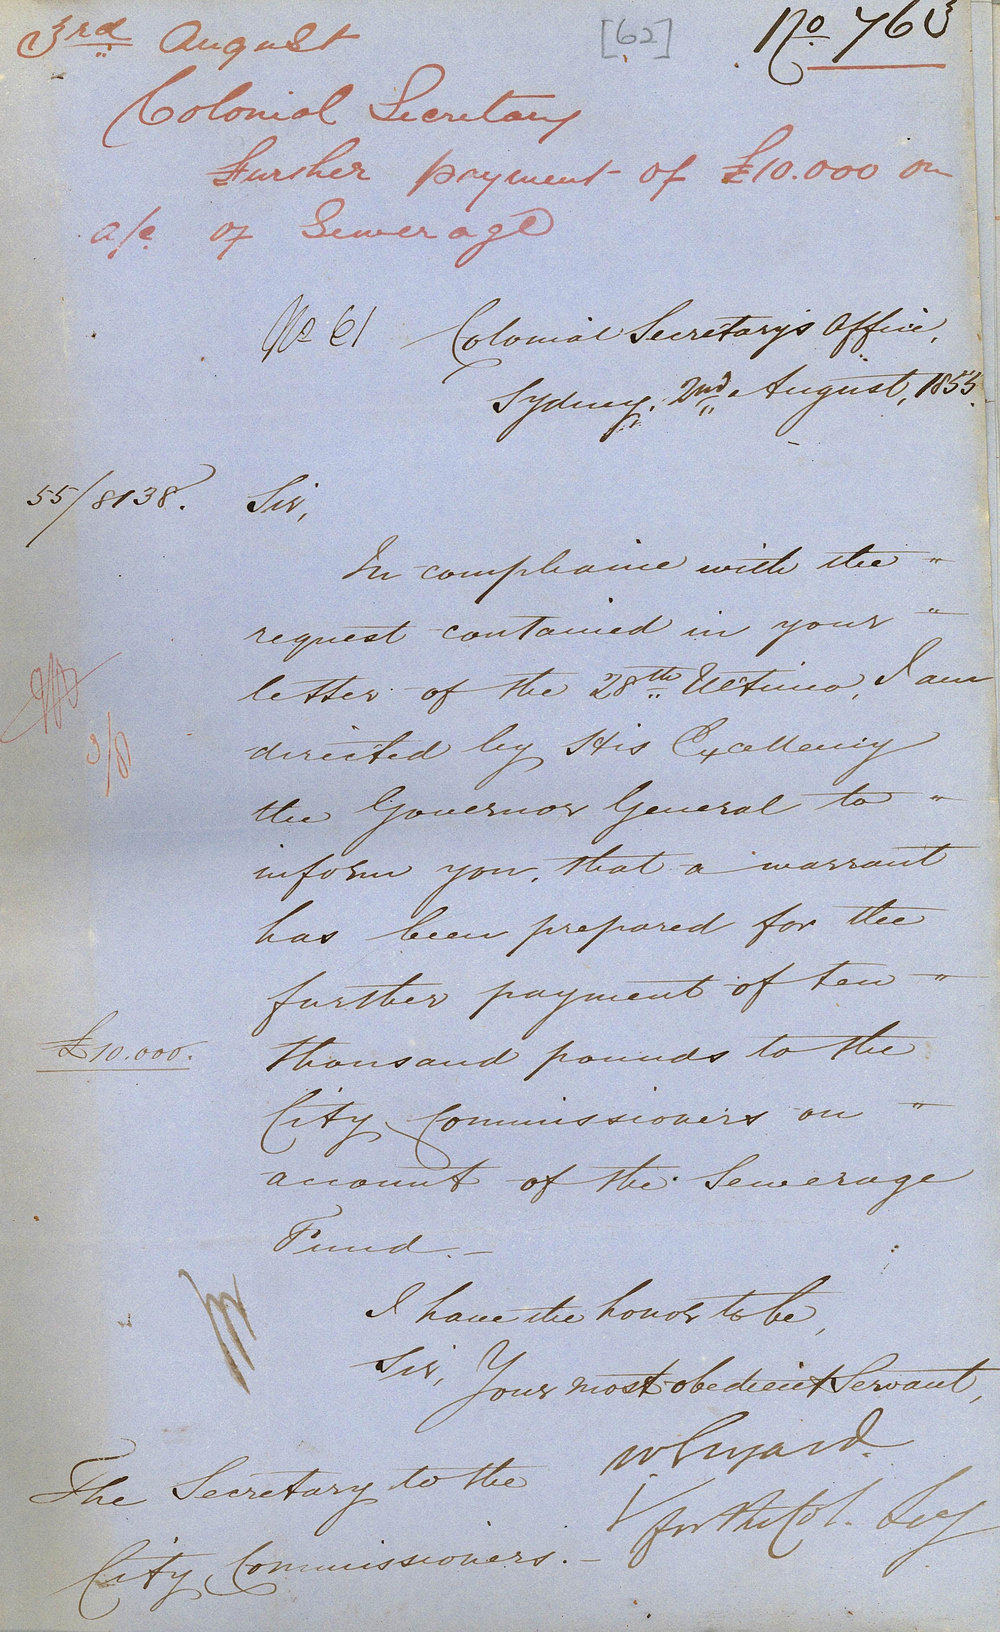 3rd August
[62]
No. 763
Colonial Secretary
Further payment of £10.000 on
a/c of Sewerage
No 61 Colonial Secretary's Office,
Sydney, 2nd August, 1855.
55/8138. Sir,
In compliance with the "
request contained in your "
letter of the 28th Ultimo, I am
directed by His Excellency
3/8
the Governor General to "
inform you, that a warrant
has been prepared for the
further payment of ten "
£10.000. thousand pounds to the
City Commissioners on "
account of the Sewerage
Fund. –
I have the honor to be,
Sir, Your most obedient Servant,
W Elyard.
for the Col. Secy
The Secretary to the
City Commissioners. –